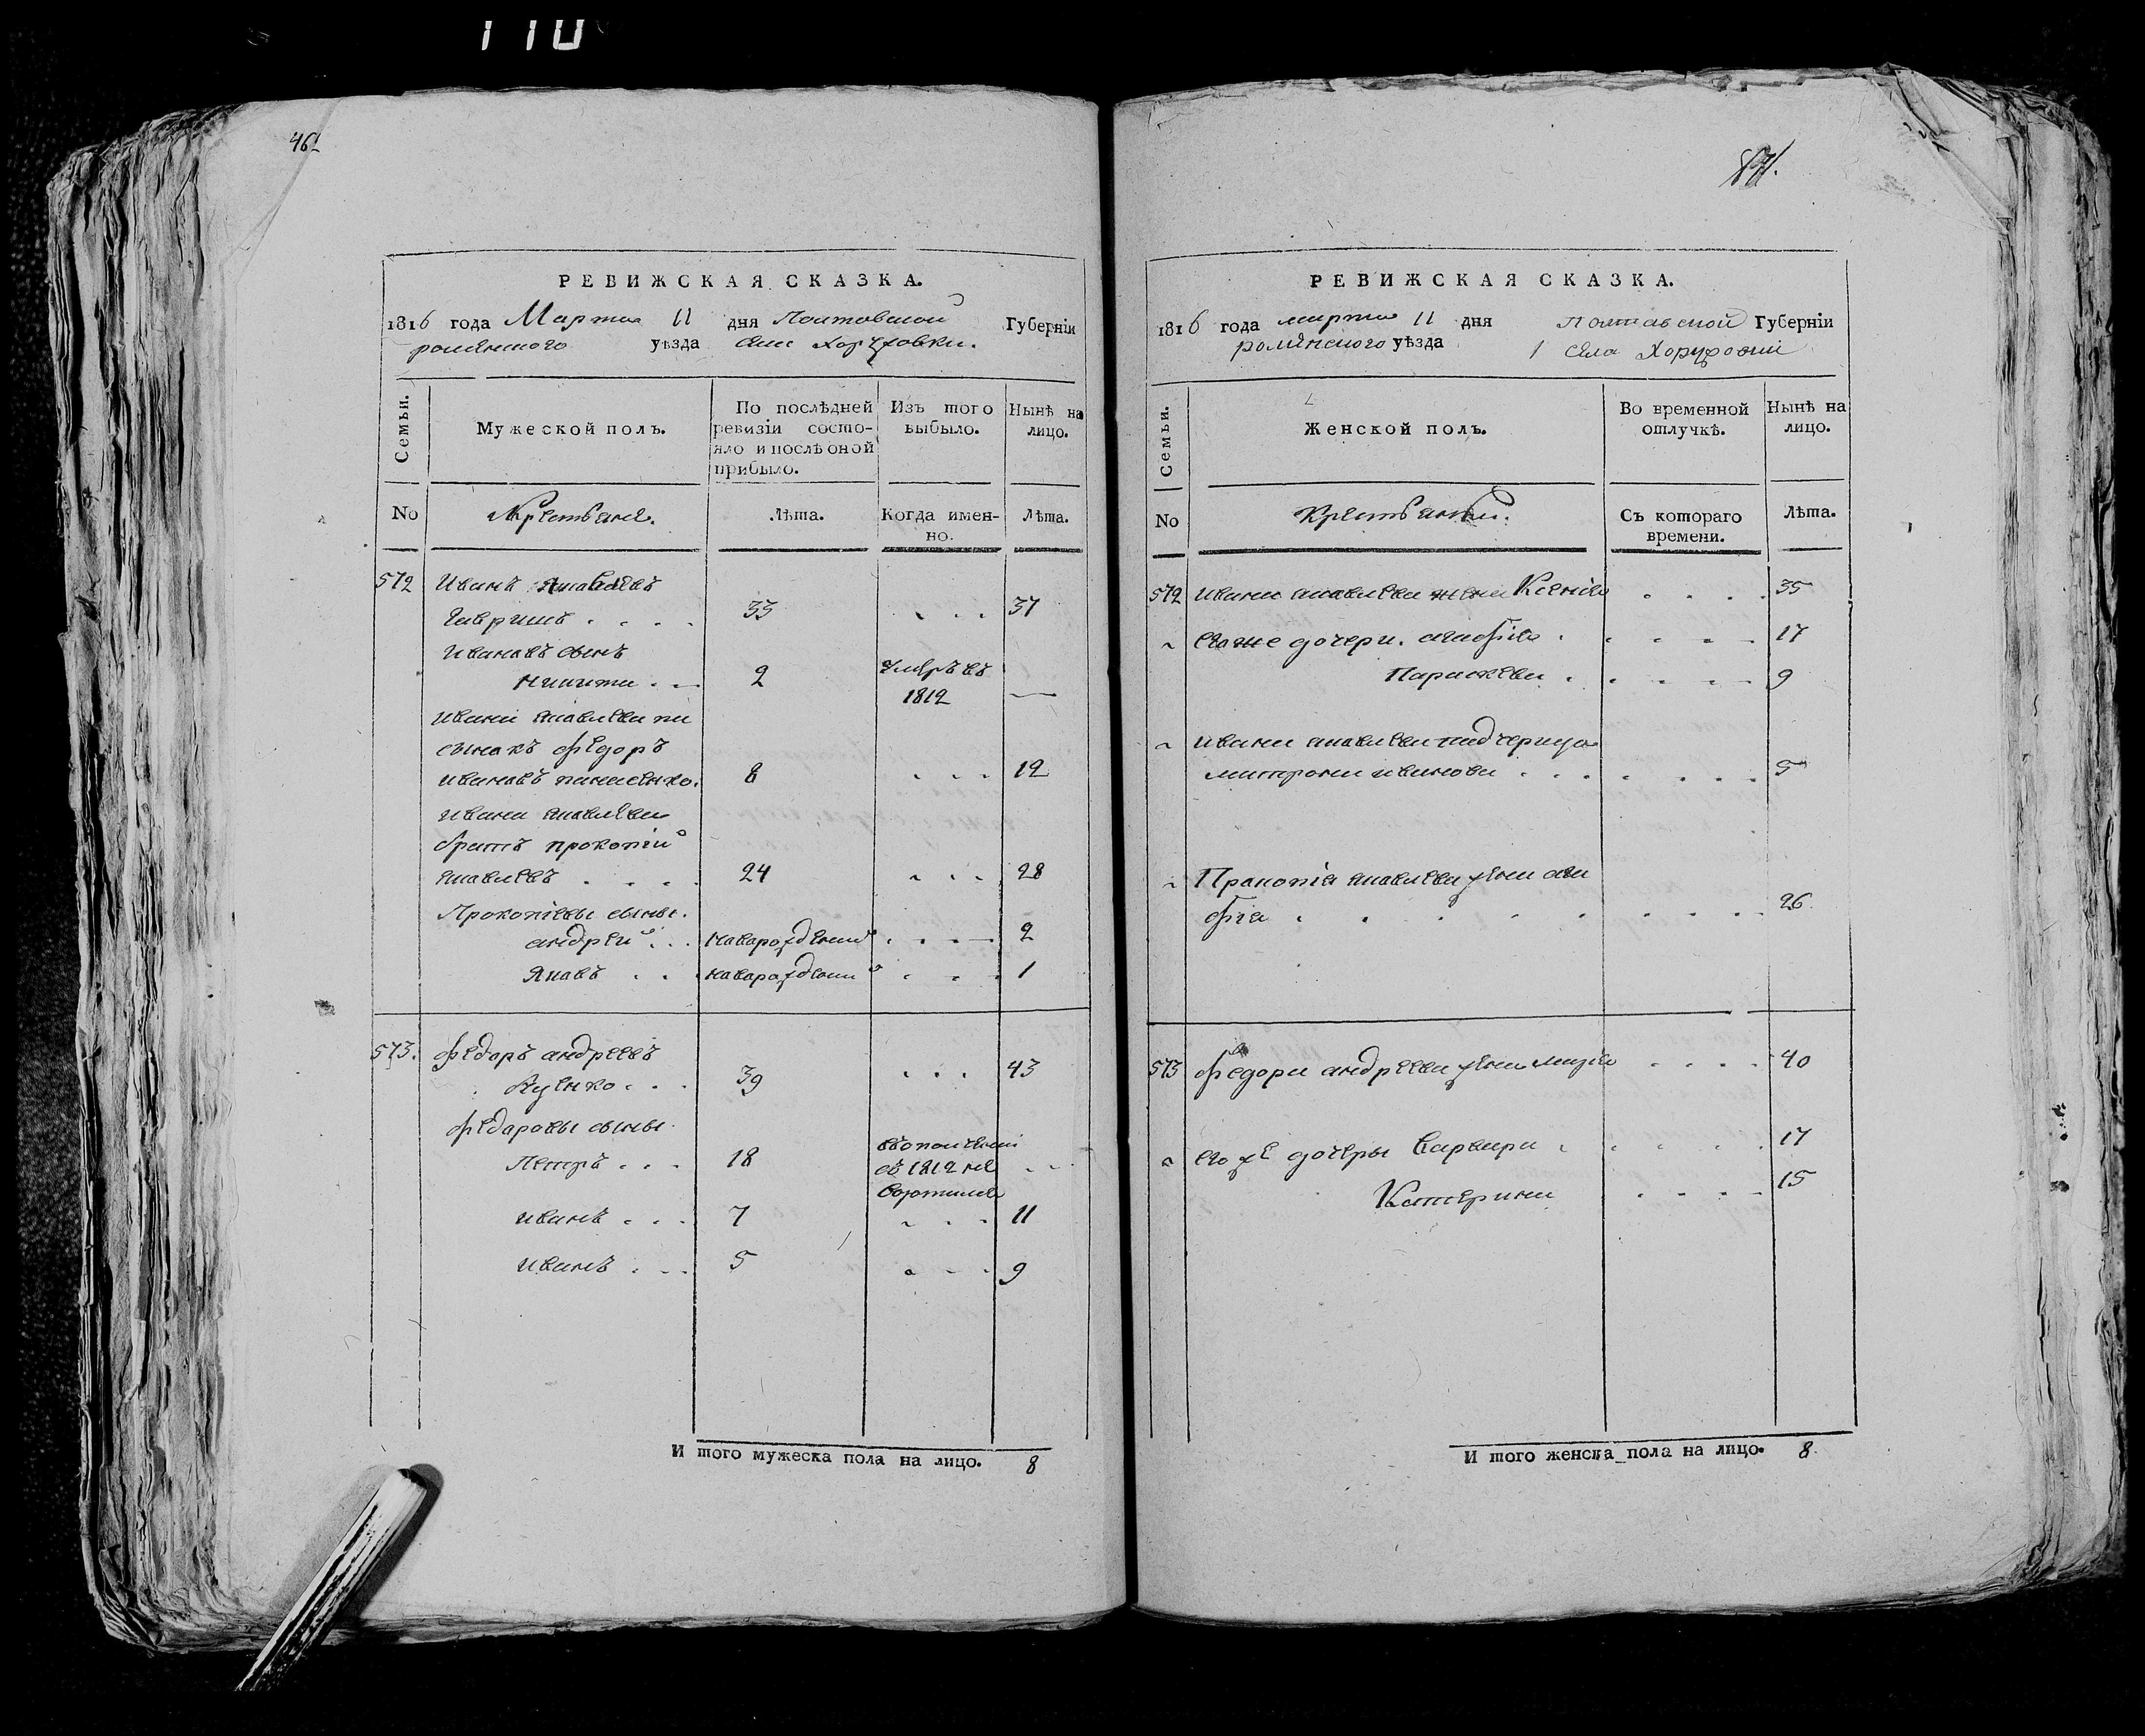 110
461
РЕВИЖСКАЯ СКАЗКА.
1816 года Марта 11 дня Полтовской Губерніи
роменского уѣзда села Хоружовки.
Семьи.
Мужеской полъ.
По послѣдней ревизіи состояло и послѣ оной прибыло.
Изъ того выбыло.
Нынѣ на лицо.
No
Крестьяне.
Лѣта.
Когда именно.
Лѣта.
572 Иванъ Яковлевъ
Гавришъ . . . . 33 . . . 37
Ивановъ сынъ
Никита . — 2 умръ въ 1812 —
Ивана яковлева па
сынокъ федоръ
ивановъ 8 . . . 12
Ивана яковлева
братъ прокопій
яковлевъ . . . . 24 . . . 28
Прокопіевы сыны.
андрей . . новорожденный . . . 2
Яковъ . . . новорожденный . . . 1
573. федоръ андреевъ
39 . . . 43
федаровы сыны.
Петръ . . . 18 въ 1812 не воротился . . .
иванъ . . . 7 . . . 11
иванъ . . . 5 . . . 9
И того мужеска пола на лицо. 8
РЕВИЖСКАЯ СКАЗКА.
1816 года марта 11 дня Полтавской Губерніи
роменского уѣзда села Хоружовки
Семьи.
Женской полъ.
Во временной отлучкѣ.
Нынѣ на лицо.
No
Крестьянки.
Съ котораго времени.
Лѣта.
572 Ивана яковлева жена Ксенія . . . . 35
его же дочери. . . . . . 17
Параскева . . . . . 9
ивана яковлева падчерица
матрона иванова . . . . . . . 5
Пракопія яковлева жена ага
фіа . . . . . . . . 26
573 федора андреева жена . . . . 40
его же дочеры Варвара . . . . . 17
Катерина . . . . 15
И того женска пола на лицо. 8.